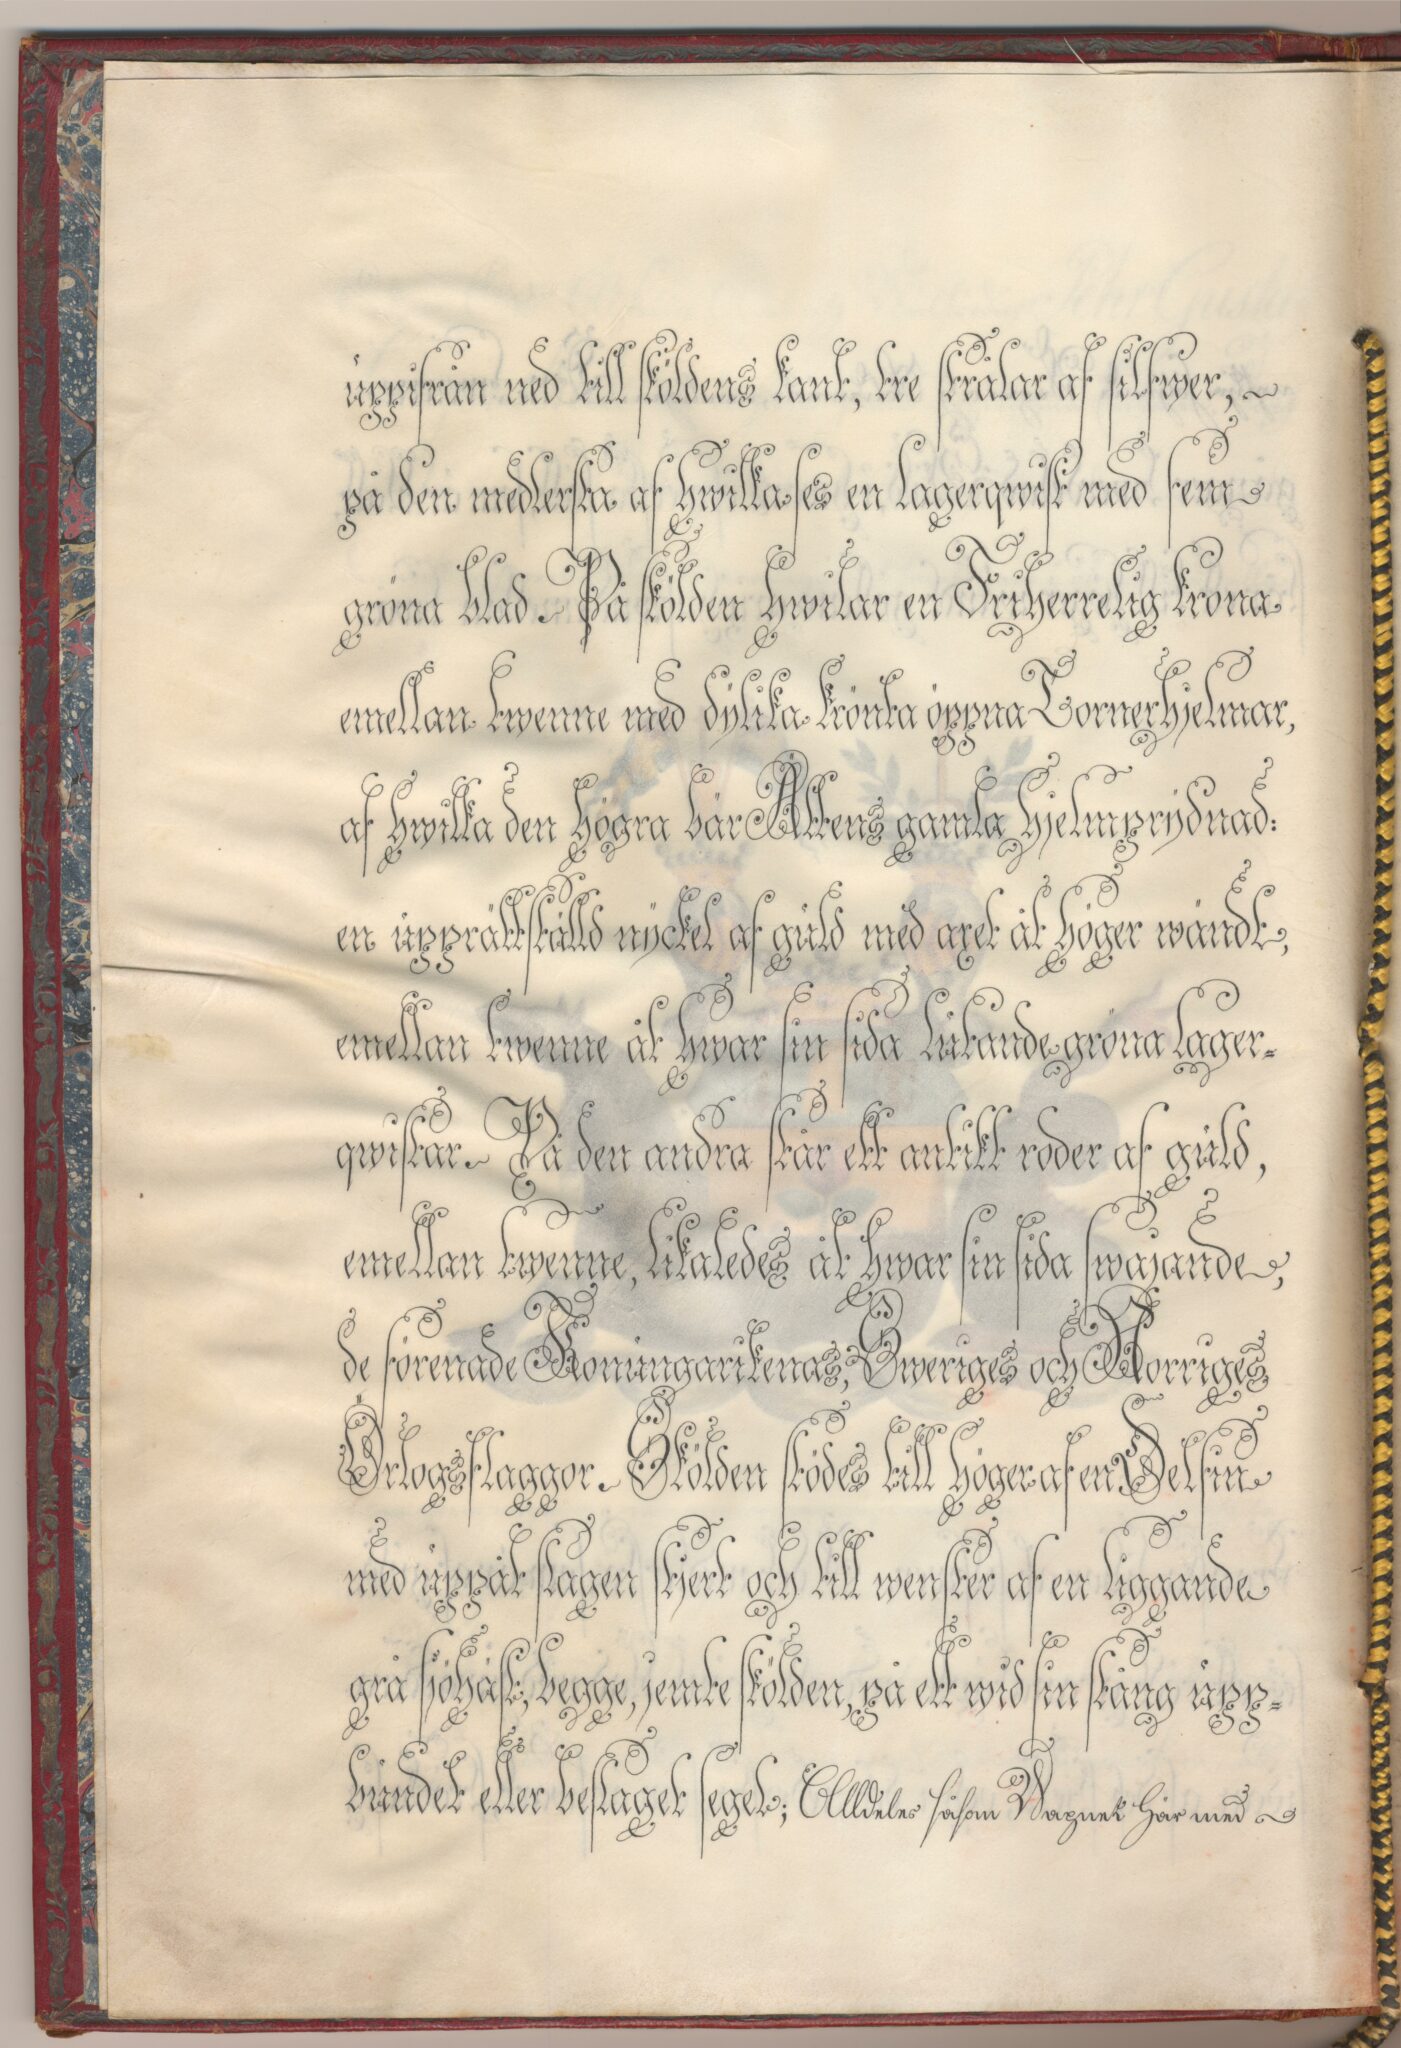 uppifrån ned till sköldens kant, tre strålar af silfwer,
på den medlersta af hwilka ses en lagerqwist med fem
gröna blad. På skölden hwilar en Friherrelig krona
emellan twenne med dylika krönta öppna Tornerhjelmar,
af hwilka den högra bär Ättens gamla hjelmprydnad:
en upprättställd nyckel af guld med axet åt höger wändt,
emellan twenne åt hwar sin sida lutande gröna lager-
qwistar. På den andra står ett antikt roder af guld,
emellan twenne, likaledes åt hwar sin sida swajande,
de förenade Konungarikenas, Sweriges och Norriges
Örlogsflaggor. Skölden stödes till höger af en Delfin
med uppåt slagen stjert och till wenster af en liggande
grå sjöhäst, begge, jemte skölden, på ett wid sin stång upp-
bundet eller beslaget segel; Alldeles såsom Wapnet här med